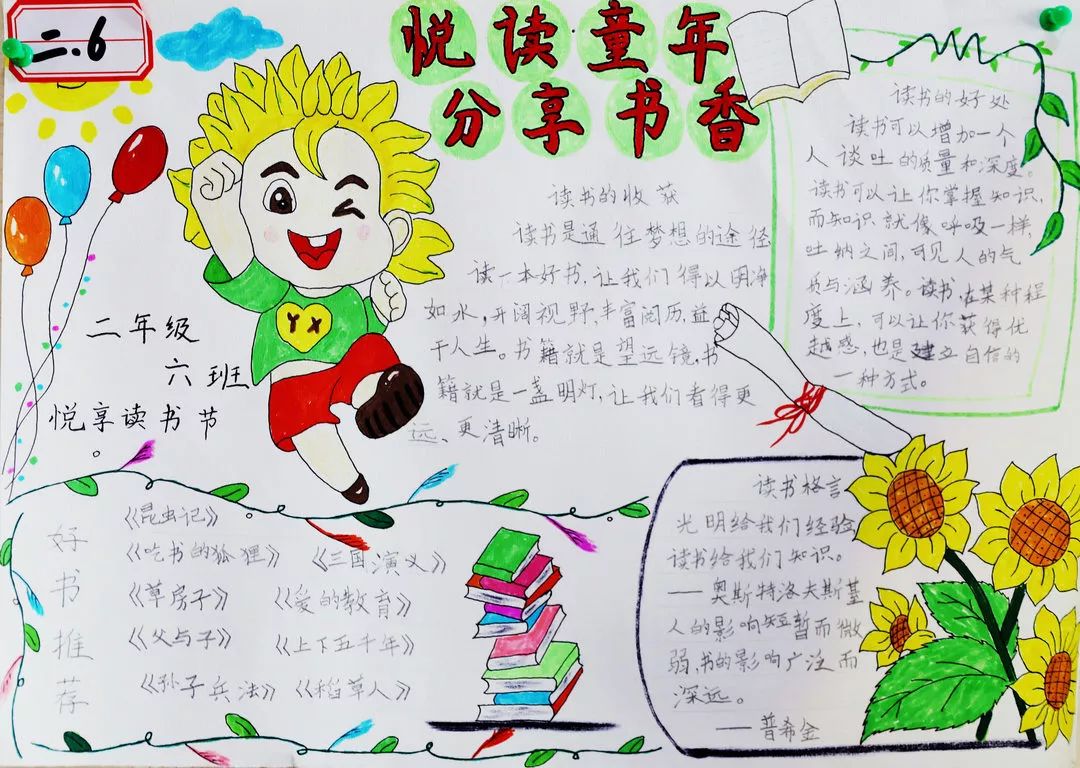 二.6
悦读童年
分享书香
YX
二年级
六班
悦享读书节
。
读书的收获
读书是通往梦想的途径
读一本好书,让我们得以明净
如水,开阔视野,丰富阅历,益
于人生。书籍就是望远镜,书
籍就是一盏明灯,让我们看得更
远、更清晰。
读书的好处
读书可以增加一个
人谈吐的质量和深度。
读书可以让你掌握知识,
而知识就像呼吸一样,
吐纳之间,可见人的气
质与涵养。读书,在某种程
度上,可以让你获得优
越感,也是建立自信的
一种方式。
好书推荐
《昆虫记》。
《吃书的狐狸》 《三国演义》
《草房子》 《爱的教育》
《父与子》 《上下五千年》
《孙子兵法》 《稻草人》
读书格言
光明给我们经验
读书给我们知识。
——奥斯特洛夫斯基
人的影响短暂而微
弱,书的影响广泛而
深远。
——普希金